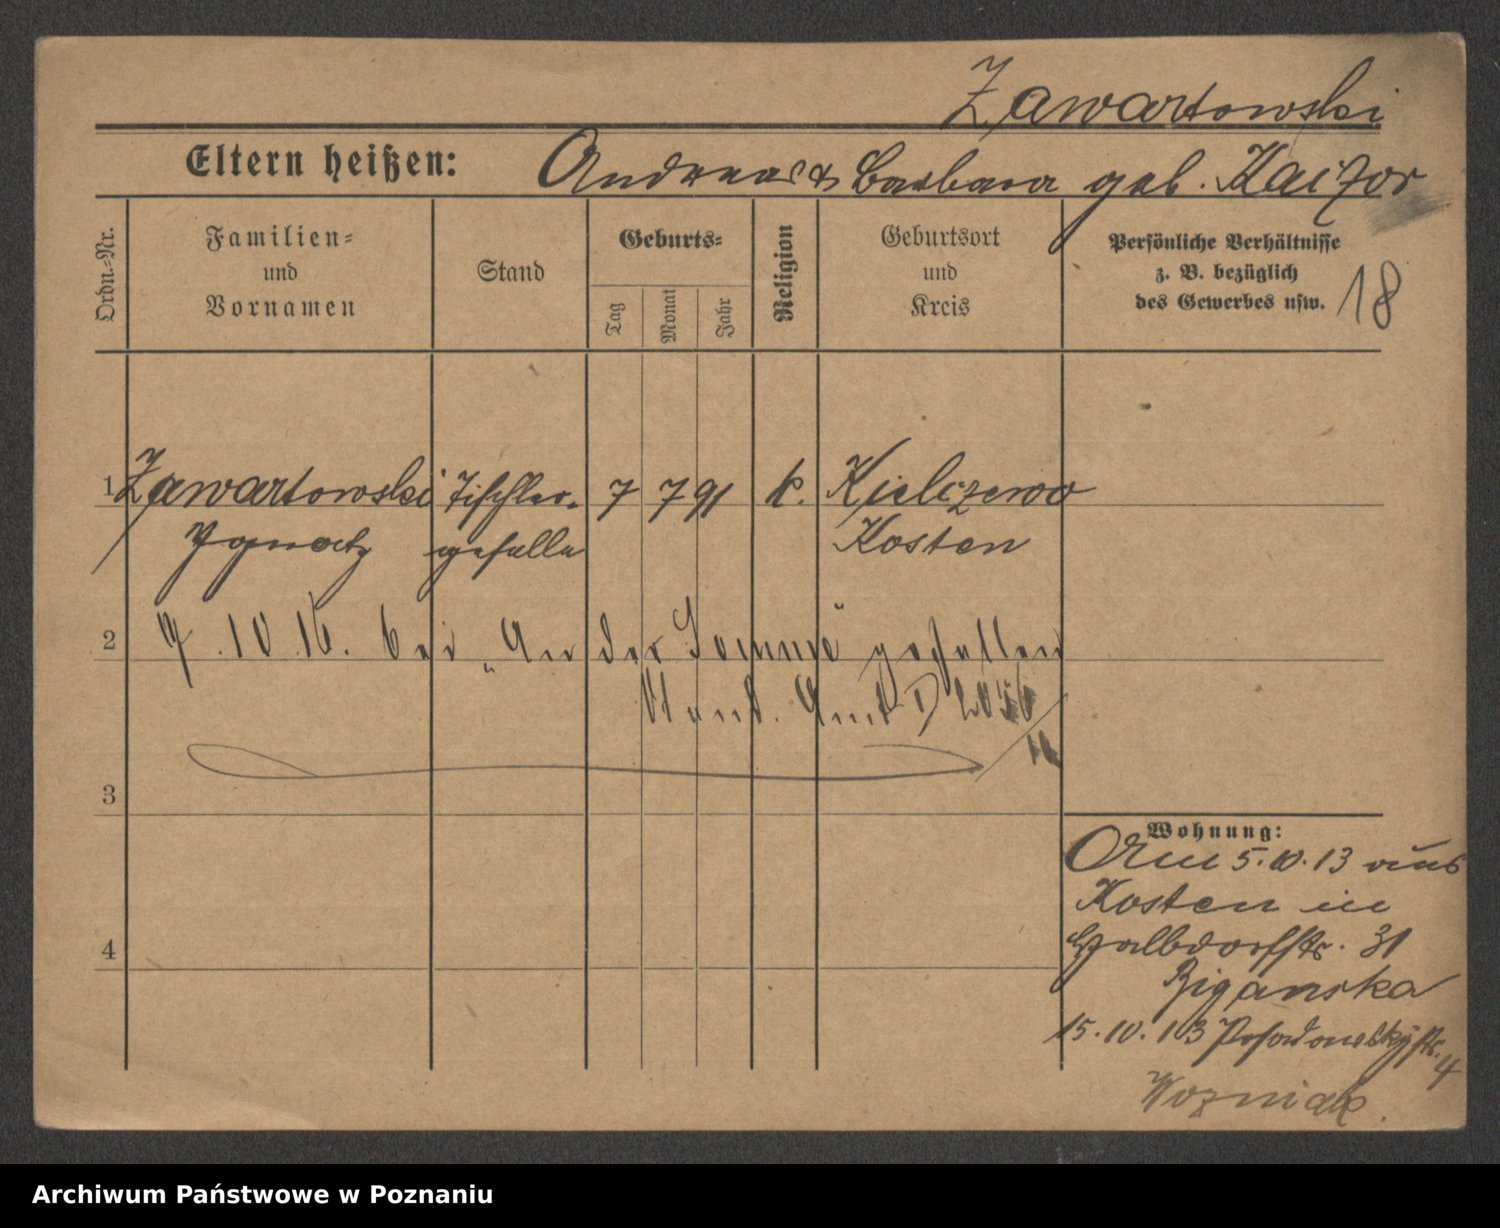 Zawartowski
Eltern heißen: Andreas & Barbara geb. Kaizor
Ordn.-Nr.
Familien- und Vornamen
Stand
Geburts-
Tag
Monat
Jahr
Religion
Geburtsort und Kreis
Persönliche Verhältnisse
z. B. bezüglich
des Gewerbes usw.
18
1 Zawartowski Tischler- 7 7 91 k. Kielczewo
Ignatz geselle Kosten
2 7.10.16. bei „An der Somme" gefallen
Stand. Amt
3
Wohnung:
5.10.13 aus
Kosten in
Halbdorfstr. 31
4
Biganska
15.10.13 Posadowskystr.
4
Wozniak.
Archiwum Państwowe w Poznaniu